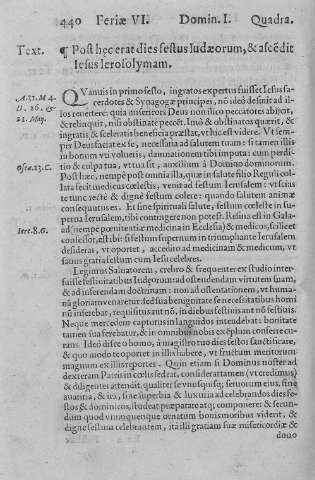 440 Feriæ VI. Domin. I. Quadra.
Text. ¶ Post hęc erat dies festus Iudæorum, & ascēdit
Iesus Ierosolymam.
QVanuis in primo festo, ingratos expertus fuisset Iesus sa-
cerdotes & Synagogæ principes, nō ideò desinit ad il-
los reuerti: quia misericors Deus non illico peccatores abijcit,
& reliquit, nisi obstinatè peccēt. Imò & obstinatos quærit, &
ingratis & sceleratis beneficia præstat, vt hic est videre. Vt sem-
per Deus faciat ex se, necessaria ad salutem tuam: si tamen illis
in bonum vti volueris, damnationem tibi imputa: cum perdi-
tio & culpa tua, vt tua sit, auxilium à Domino dormitorum.
Post hæc, nempè post omnia illa, quæ in salute filio Reguli col-
lata fecit medicus cœlestis, venit ad festum Ierusalem: vt scias
te tunc rectè & dignè festum colere: quando salutem animæ
consequutus es. At sine spirituali salute, festum cœleste in su-
perna Ierusalem, tibi contingere non potest. Resina est in Gala-
ad (nempè pœnitentiæ medicina in Ecclesia) & medicus, scilicet
confessor, est ibi: si festum supernum in triumphante Ierusalem
desideras, vt oportet, accedito ad medicinam & medicum, vt
sanus gratia festum cum Iesu celebres.
Legimus Saluatorem, crebro & frequenter ex studio inter-
fuisse festiuitatibus Iudęorum: ad ostendendam virtutem suam,
& ad inserendam doctrinam: non ad ostentationem, vt huma-
nā gloriam venaretur: sed sua benignitate se necessitatibus homi
nū inserebat, requisitus aut nō, in diebus festiuis aut nō festiuis.
Neque mercedem capturus in languidos intendebat: bonitate
tamen sua ferebatur, & in omnibus nobis exēplum conferre cu-
rans. Ideò disce ò homo, à magistro tuo dies festos sanctificare,
& quo modo te oportet in illis habere, vt fructum meritorum
magnum ex illis reportes. Quin etiam si Dominus noster ad
dexteram Patris in cœlis sedeat, considerat tamen (vt credimus)
& diligenter attendit, qualiter se vnusquisq; seruorum eius, sine
auaritia, & ira, sine superbia & luxuria ad celebrandos dies fe-
stos & dominicos, studeat præparare atq; componere: & secun-
dum quod vnumquenque ornatum bonis moribus viderit, &
dignè festum celebrantem, ita illi gratiam suæ misericordiæ &
dono
A. 37. M 4.
D. 26. &
21. May.
Oseæ. 13. C.
Iere. 8. G.